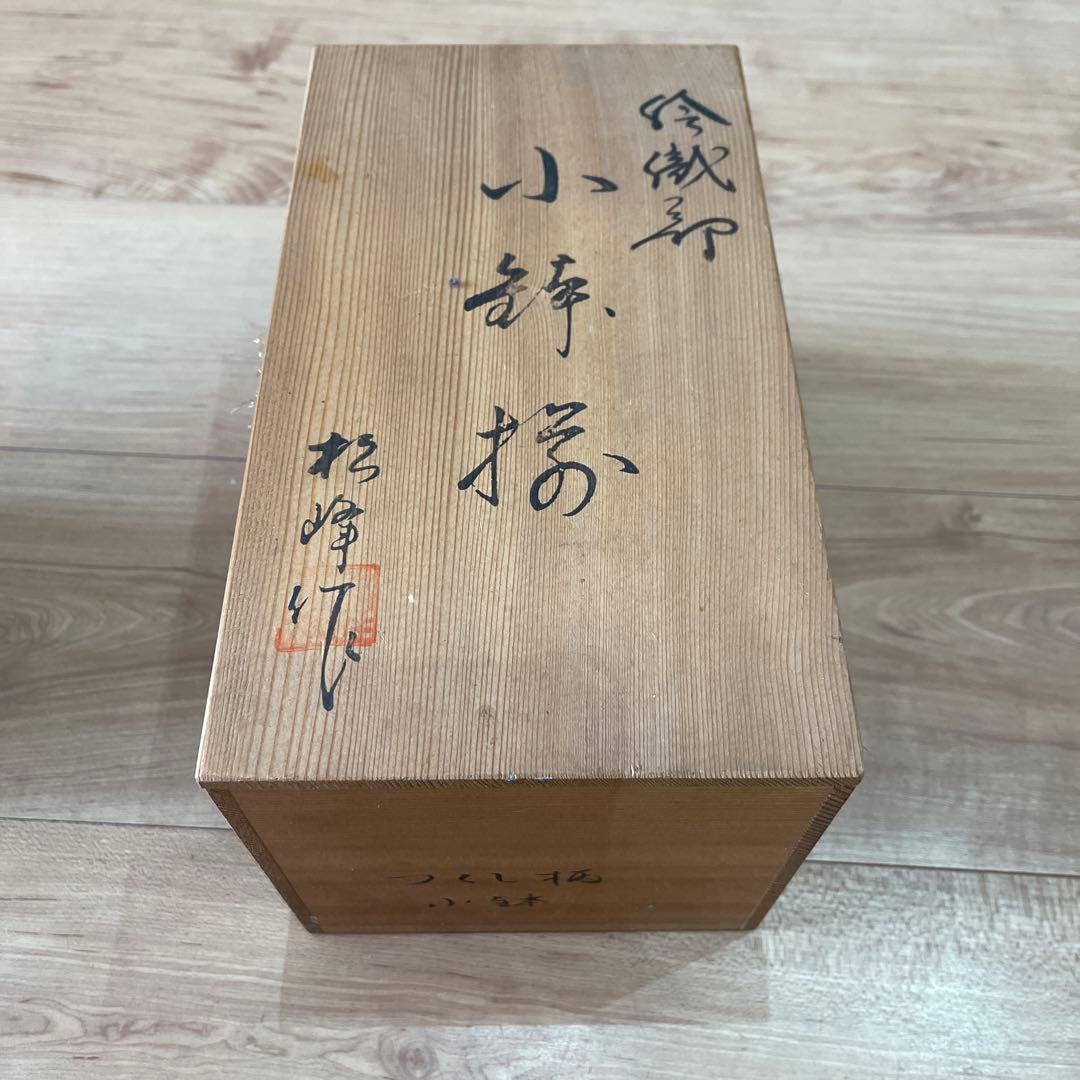 絵織部
小鉢揃
松峰作
つくし柄
小鉢